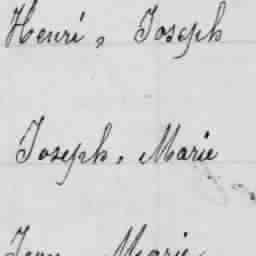 Henri, Joseph
Joseph, Marie
Jean Marie